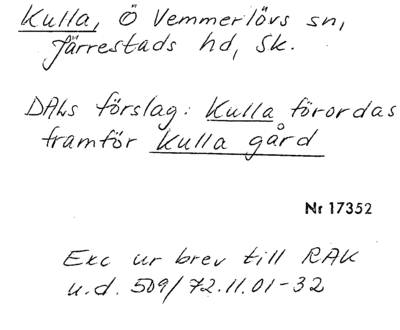 Kulla, Ö Vemmerlövs sn,
Järrestads hd, Sk.
DALs förslag: Kulla förordas
framför Kulla gård
Nr 17352
Exc ur brev till RAK
u.d. 509/72.11.01-32